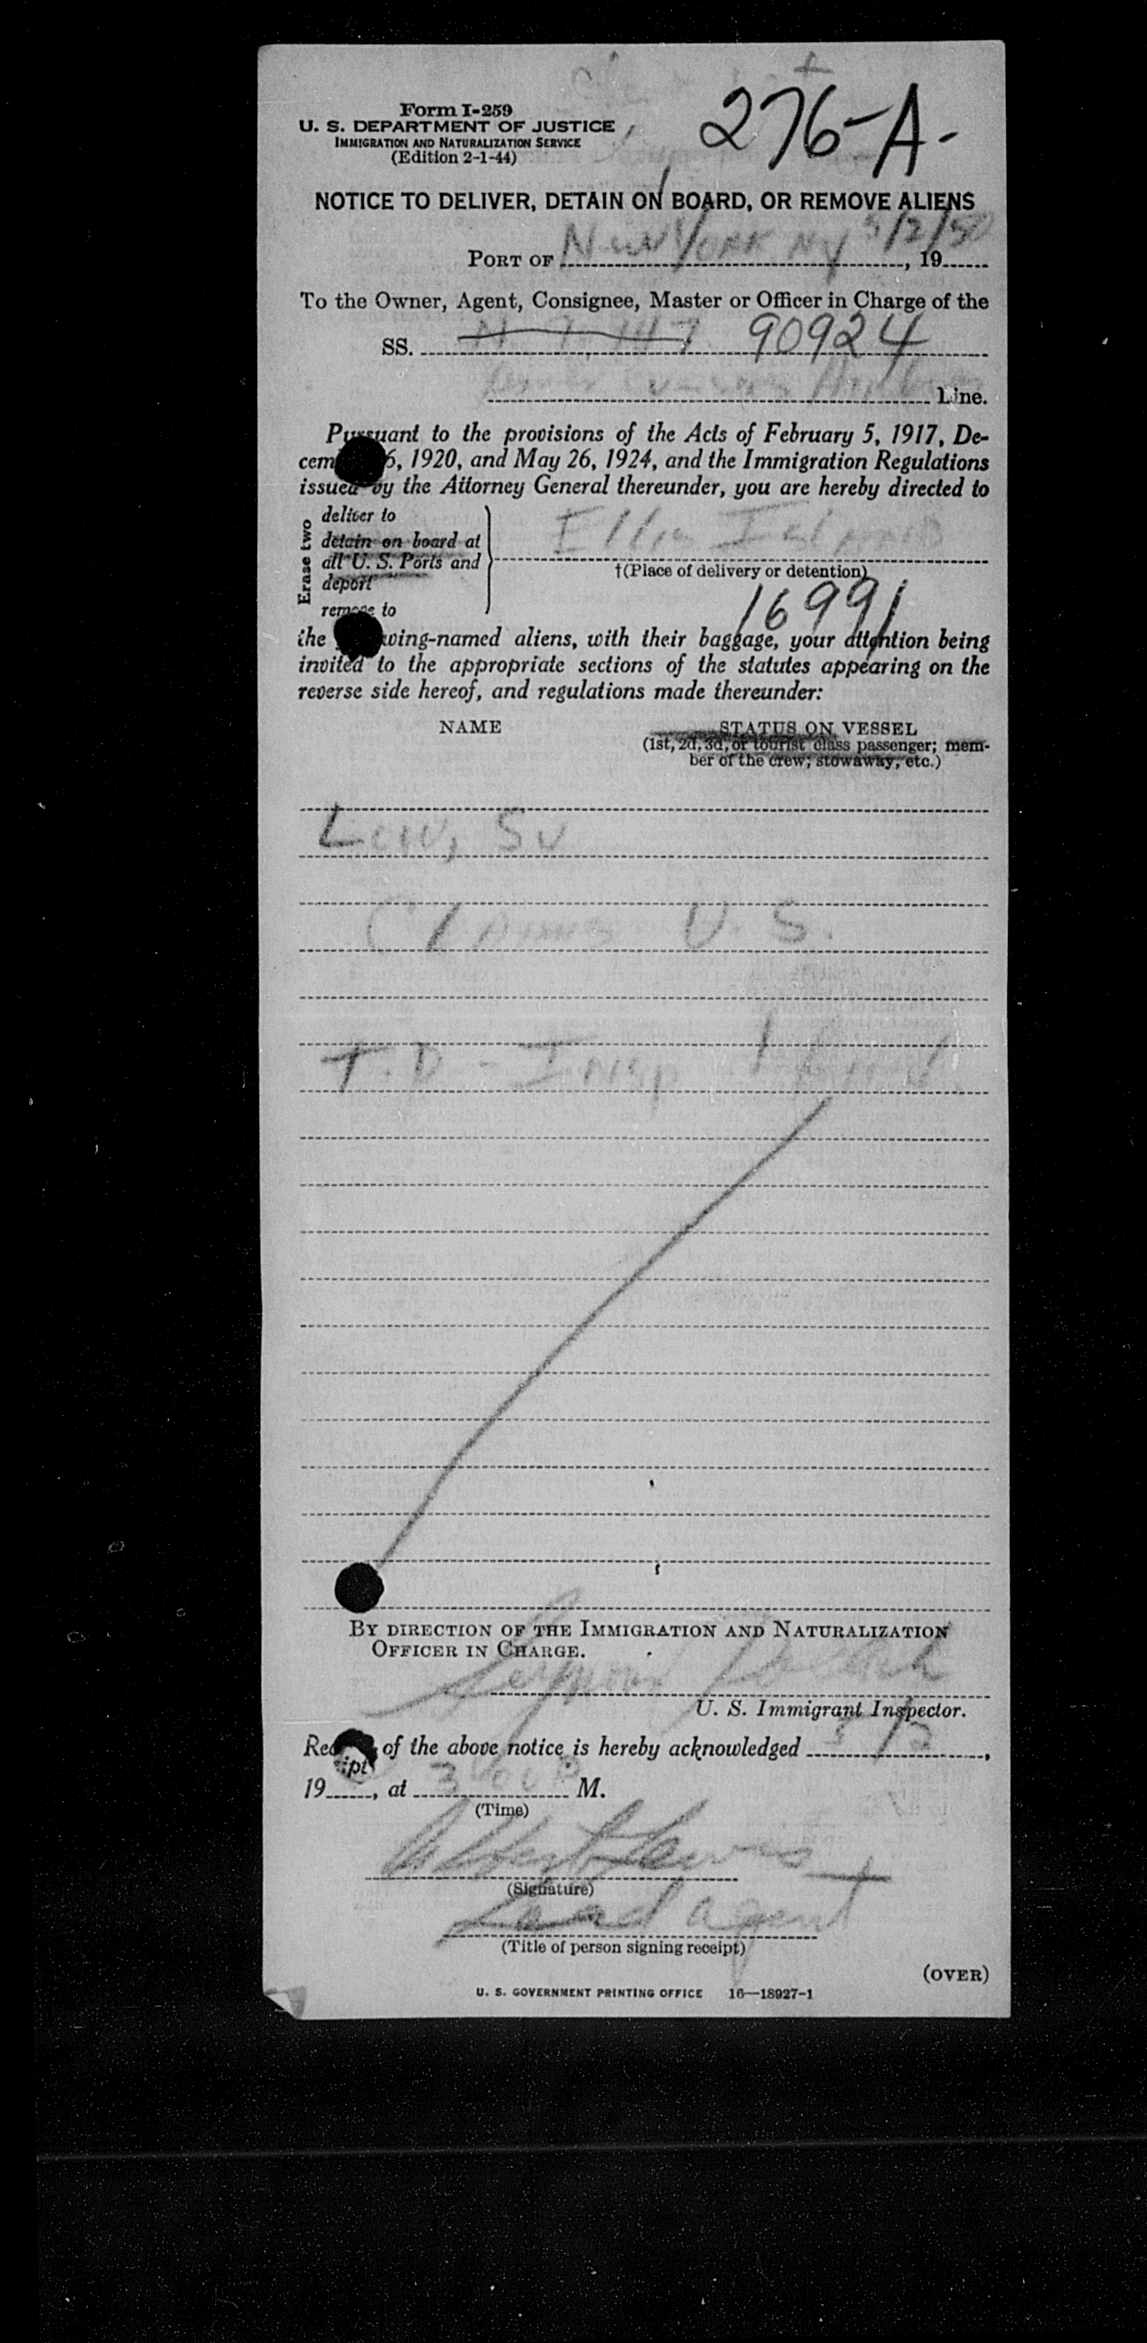 Form I-259
276-A-
U. S. DEPARTMENT OF JUSTICE
IMMIGRATION AND NATURALIZATION SERVICE
(Edition 2-1-44)
NOTICE TO DELIVER, DETAIN ON BOARD, OR REMOVE ALIENS
PORT OF New York NY 5/2/50, 19
To the Owner, Agent, Consignee, Master or Officer in Charge of the
SS. 90924
Line.
Pursuant to the provisions of the Acts of February 5, 1917, De-
cem 6, 1920, and May 26, 1924, and the Immigration Regulations
issued by the Attorney General thereunder, you are hereby directed to
Erase two
deliver to
detain on board at
all U. S. Ports and
deport
remove to
Ellis Island
†(Place of delivery or detention)
16991
the wing-named aliens, with their baggage, your attention being
invited to the appropriate sections of the statutes appearing on the
reverse side hereof, and regulations made thereunder:
NAME
STATUS ON VESSEL
(1st, 2d, 3d, or tourist class passenger; mem-
ber of the crew; stowaway, etc.)
Lew, Su
Claims U. S.
T.D - Insp
BY DIRECTION OF THE IMMIGRATION AND NATURALIZATION
OFFICER IN CHARGE.
U. S. Immigrant Inspector.
Receipt of the above notice is hereby acknowledged 5/2,
19, at 3 00 P M.
(Time)
Albert Lewis
(Signature)
Lead agent
(Title of person signing receipt)
(OVER)
U. S. GOVERNMENT PRINTING OFFICE 16—18927-1